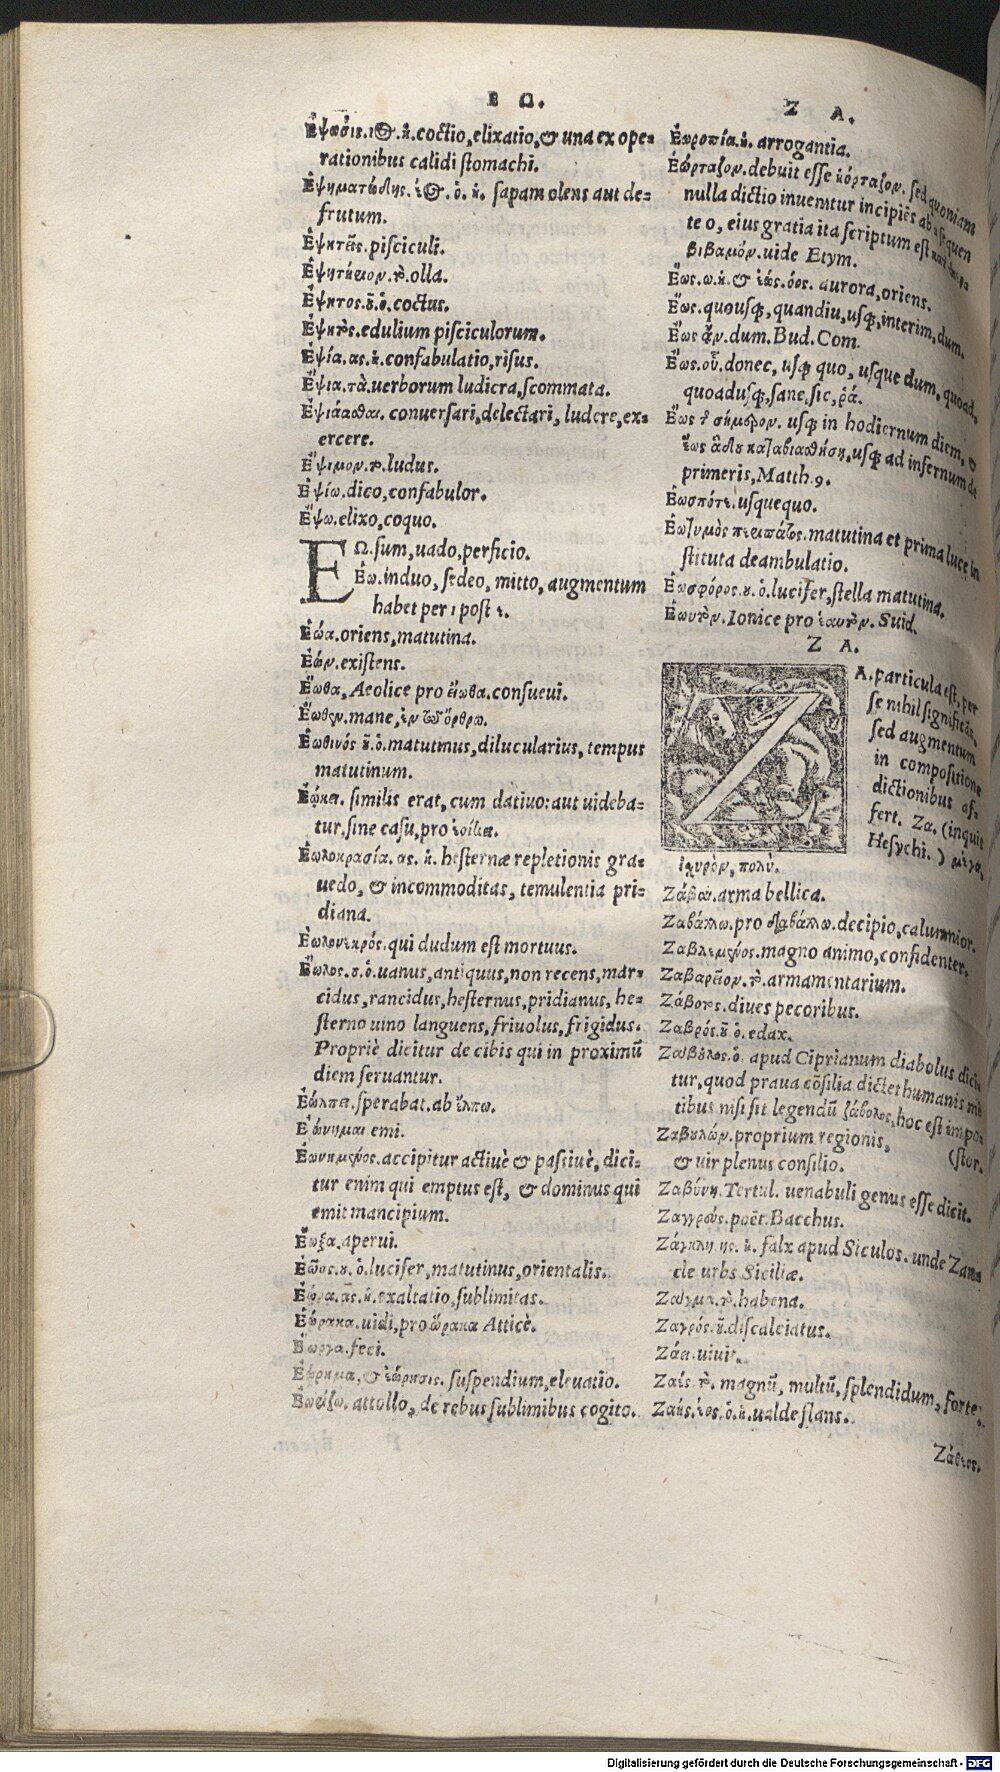 E Ω.
Ἕψησις.ιος.ἡ.coctio,elixatio,& una ex ope=
rationibus calidi stomachi.
Ἑψηματώδης.έος.ὁ.ἡ. sapam olens aut de=
frutum.
Ἑψητοὶς.pisciculi.
Ἑψητήριον.τὸ.olla.
Ἑψητος.ȣ̃.ὁ.coctus.
edulium pisciculorum.
Ἑψία.ας.ἡ.confabulatio,risus.
Ἕψια.τὰ.uerborum ludicra,scommata.
Ἑψιάασθαι. conuersari,delectari, ludere,ex=
ercere.
Ἕψιμον.τὸ.ludus.
Ἑψίω.dico,confabulor.
Ἕψω.elixo,coquo.
EΩ.sum,uado,perficio.
Ἕω.induo, sedeo, mitto, augmentum
habet per ι post ε.
Ἑώα.oriens,matutina.
Ἐών.existens.
Ἔωθα, Aeolice pro εἴωθα.consueui.
Ἕωθεν.mane,ἐν τῷ ὄρθρῳ.
Ἑωθινός ȣ̃.ὁ.matutinus,dilucularius, tempus
matutinum.
Ἐῴκει. similis erat, cum datiuo: aut uideba=
tur,sine casu,pro ἐοίκει.
Ἑωλοκρασία. ας. ἡ. hesternæ repletionis gra=
uedo, & incommoditas, temulentia pri=
diana.
Ἑωλόνεκρός.qui dudum est mortuus.
Ἕωλος.ȣ.ὁ.uanus,antiquus,non recens,mar=
cidus,rancidus,hesternus,pridianus, he=
sterno uino languens,friuolus,frigidus.
Propriè dicitur de cibis qui in proximũ
diem seruantur.
Ἐώλπει.sperabat.ab ἔλπω.
Ἐώνημαι emi.
Ἐωνημένος.accipitur actiuè & passiuè, dici=
tur enim qui emptus est, & dominus qui
emit mancipium.
Ἔωξα.aperui.
Ἑῶος.ȣ.ὁ.lucifer,matutinus,orientalis.
Ἐώρα.ας.ἡ.exaltatio,sublimitas.
Ἑώρακα.uidi,pro ὥρακα Atticè.
Ἔωργα.feci.
Ἐώρημα, & ἐώρησις. suspendium,eleuatio.
attollo, de rebus sublimibus cogito.
Z A.
Ἐωροπία.ἡ. arrogantia.
Ἑώρταζον.debuit esse ἡόρταζον. sed quoniam
nulla dictio inuenitur incipiẽs ab η sequen
te o, eius gratia ita scriptum est
βιβαμόν.uide Etym.
Ἕως.ω.ἡ.& ἑώς.όος. aurora,oriens.
Ἕως.quousq;,quandiu,usq;,interim,dum.
Ἕως ἄν.dum.Bud.Com.
Ἕως.οὗ.donec, usq; quo, usque dum, quoad,
quoadusq;,sane,sic,ῥά.
Ἕως τ σήμερον. usq; in hodiernum diem, &
ἕως ἅδου καταβιασθήσῃ,usq; ad infernum de
primeris,Matth.9.
Ἑωσπότε.usquequo.
περιπάτος.matutina et prima luce in
stituta deambulatio.
Ἑωσφόρος.ȣ.ὁ.lucifer,stella matutina.
Ἑωυτὸν.Ionice pro ἑαυτὸν. Suid.
Z A.
ZA.particula est, per
se nihil significãs,
sed augmentum
in compositione
dictionibus af=
fert. Ζα. (inquit
Hesychi.) μέγα,
ἰχυρὸν, πολύ.
arma bellica.
Ζαβάλλω.pro διαβάλλω.decipio,calumnior.
Ζαβλεμένος.magno animo,confidenter.
Ζαβαρεῖον.τὸ.armamentarium.
Ζάβοτος.diues pecoribus.
Ζαβρός.ȣ̃ ὁ.edax.
apud Ciprianum diabolus dici
tur,quod praua cõsilia dictet humanis mẽ
tibus nisi sit legendũ ζάβολος,hoc est impo=
Ζαβȣλών.proprium regionis, (stor.
& uir plenus consilio.
Ζαβύνη.Tertul. uenabuli genus esse dicit.
Ζαγρεὺς.poët.Bacchus.
Ζάγκλη.ης.ἡ. falx apud Siculos. unde Zan
cle urbs Siciliæ.
τὸ.habena.
Ζαγρός.ȣ̃.discalciatus.
Ζάει.uiuit.
Ζαές.τὸ. magnũ, multũ, splendidum, forte,
Ζαὴς.έος.ὁ.ἡ.ualde flans.
Ζάθεος.
Digitalisierung gefördert durch die Deutsche Forschungsgemeinschaft - DFG